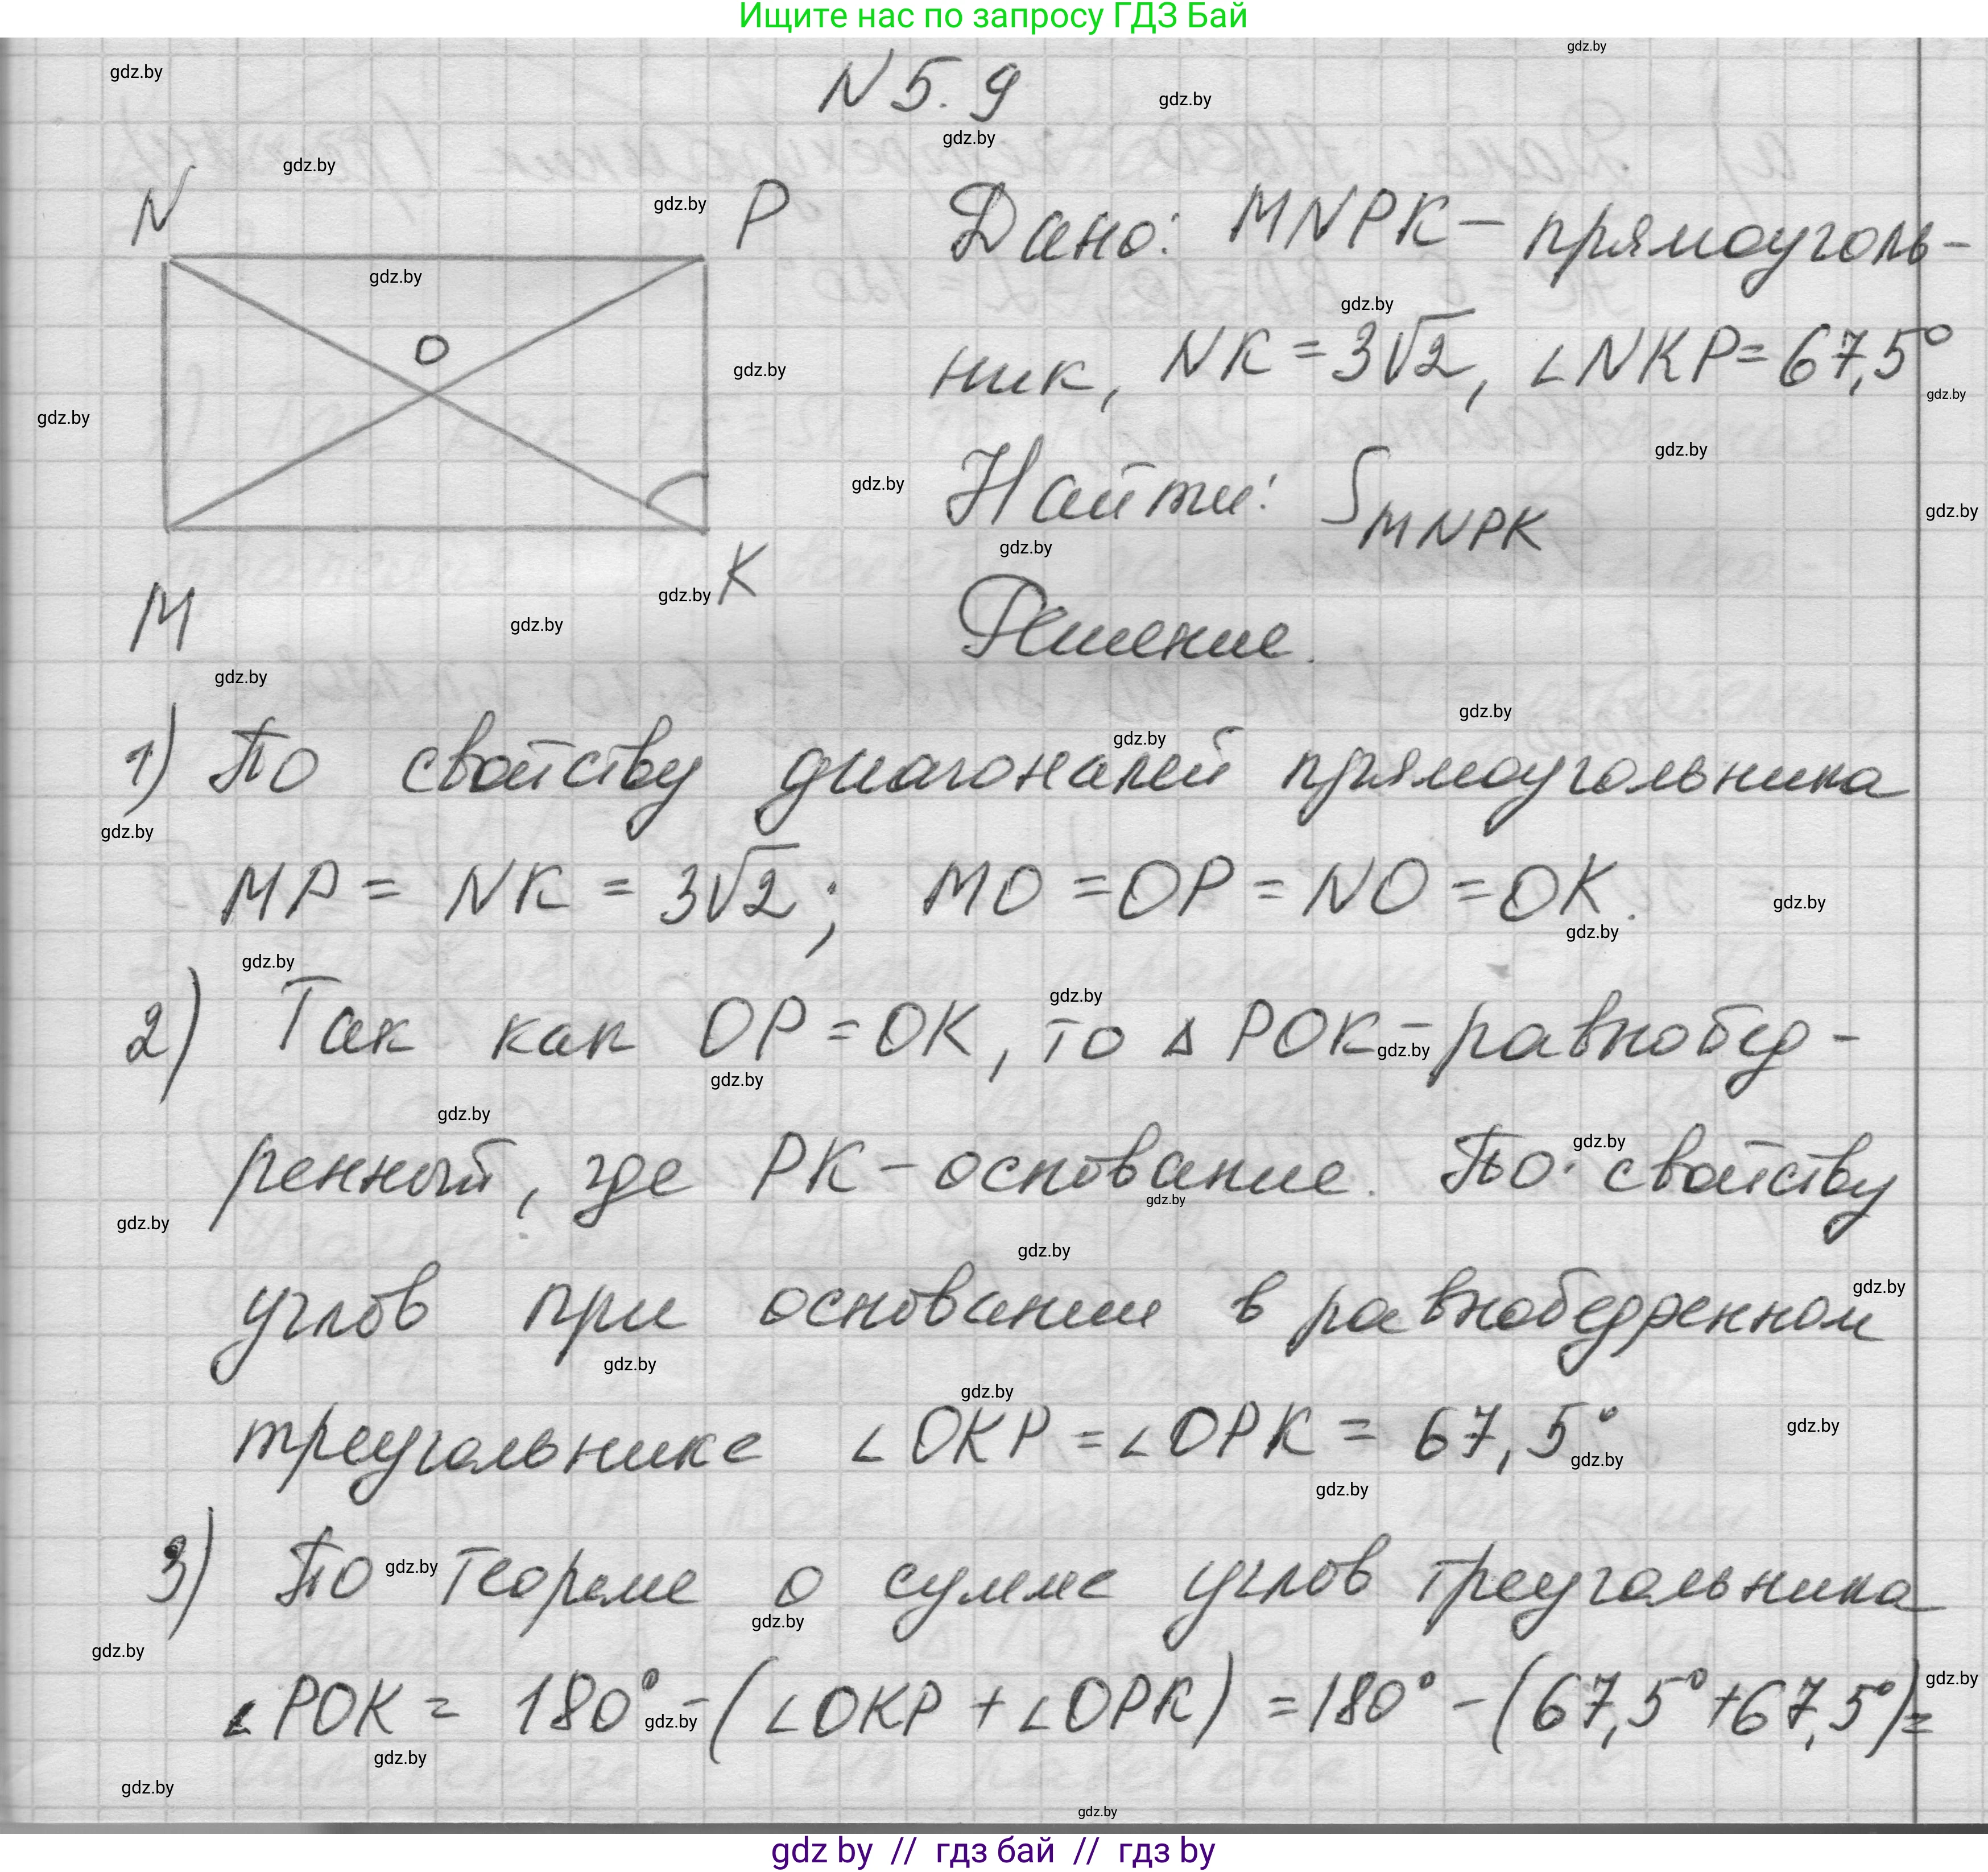 Ищите нас по запросу ГДЗ Бай
N 5.9
N
P
O
M
K
Дано: MNPK – прямоуголь-
ник, NK = 3√2, ∠NKP = 67,5°
Найти: S MNPK
Решение.
1) По свойству диагоналей прямоугольника
MP = NK = 3√2; MO = OP = NO = OK.
2) Так как OP = OK, то △ POK – равнобед-
ренный, где PK – основание. По свойству
углов при основании в равнобедренном
треугольнике ∠OKP = ∠OPK = 67,5°
3) По теореме о сумме углов треугольника
∠POK = 180° – (∠OKP + ∠OPK) = 180° – (67,5° + 67,5°) =
gdz by // гдз бай // гдз by